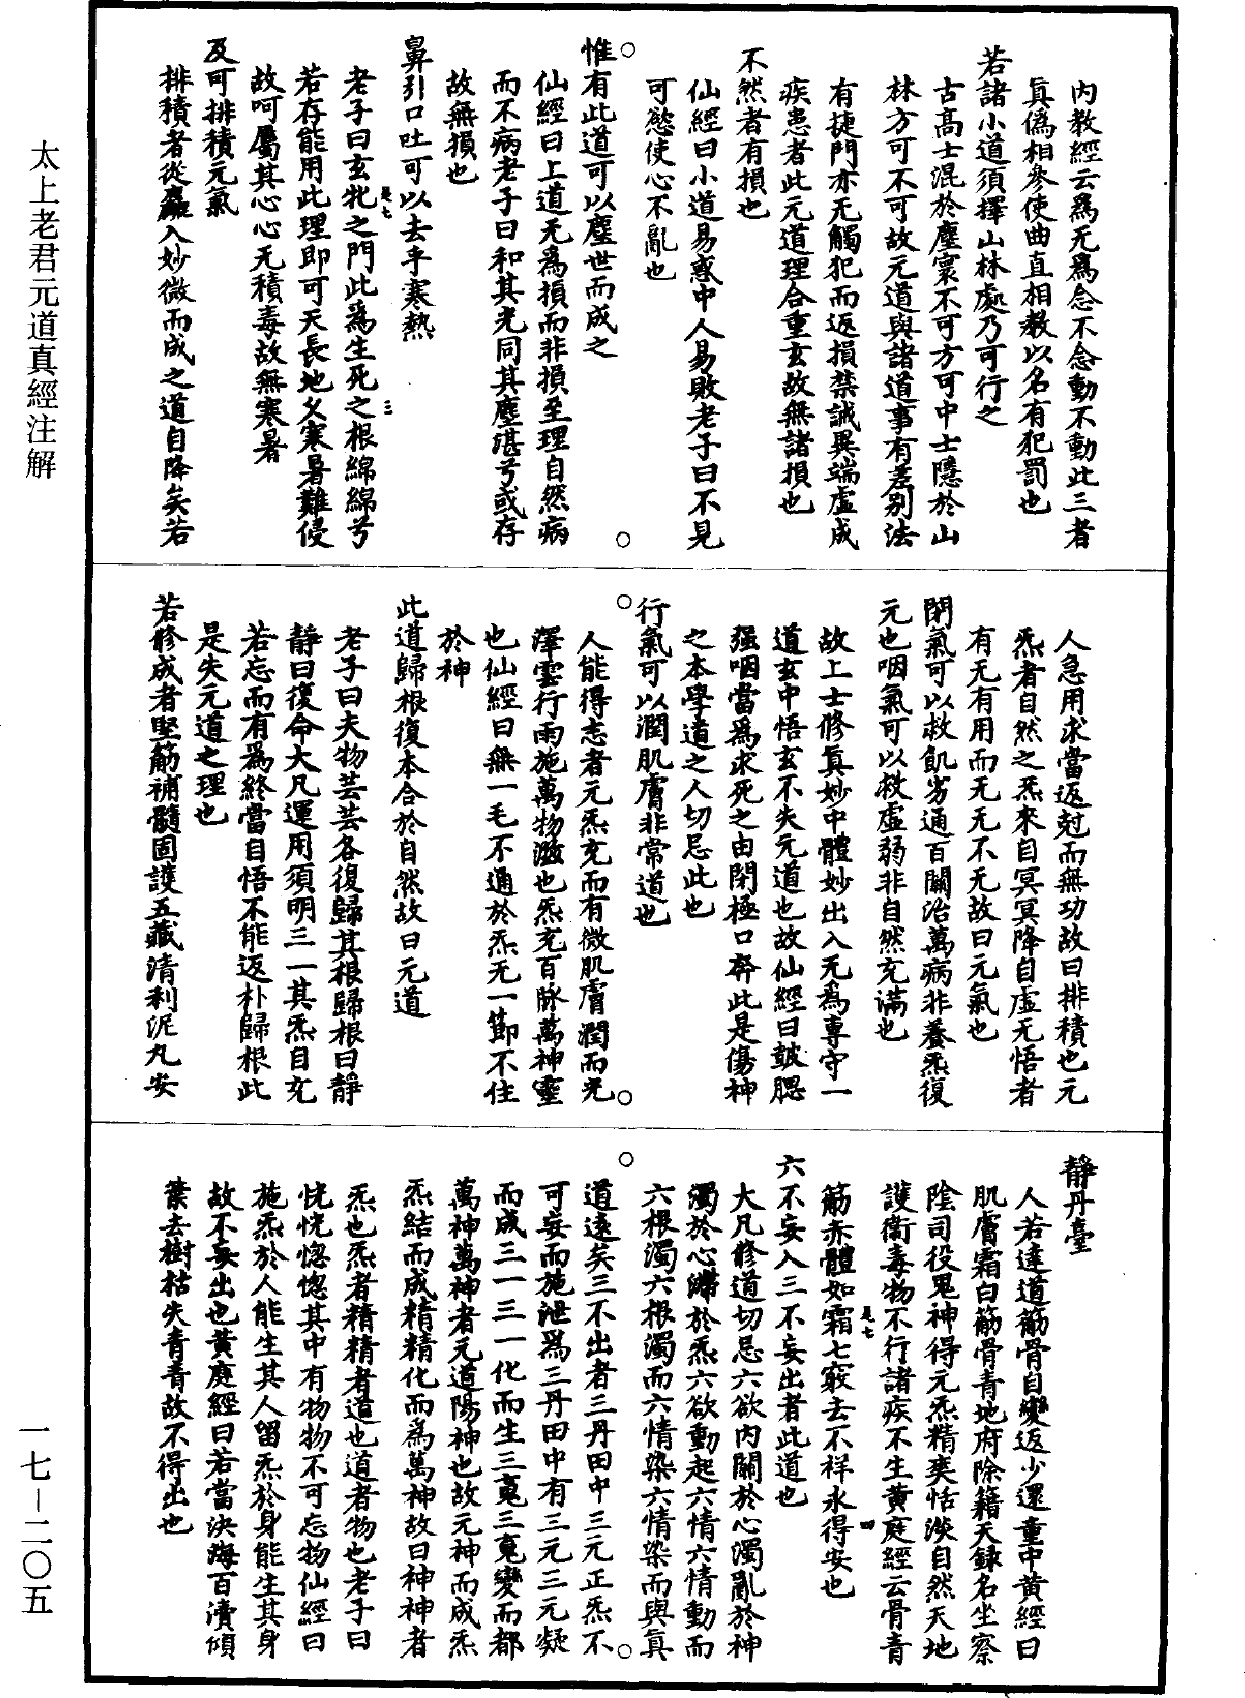 太上老君元道真經注解
內教經云為无為念不念動不動此三者
真偽相參使曲直相教以名有犯罰也
若諸小道須擇山林處乃可行之
古高士混於塵寰不可方可中士隱於山
林方可不可故元道與諸道事有差別法
有捷門亦无觸犯而返損禁誡異端虛成
疾患者此元道理合重玄故無諸損也
不然者有損也
仙經曰小道易惑中人易敗老子曰不見
可慾使心不亂也
惟有此道可以塵世而成之
仙經曰上道无為損而非損至理自然病
而不病老子曰和其光同其塵湛兮或存
故無損也
鼻引口吐可以去乎寒熱
老子曰玄牝之門此為生死之根綿綿兮
若存能用此理即可天長地久寒暑難侵
故呵屬其心心无積毒故無寒暑
及可排積元氣
排積者從麤入妙微而成之道自降矣若
人急用求當返尅而無功故曰排積也元
炁者自然之炁來自冥冥降自虛无悟者
有无有用而无无不无故曰元氣也
閉氣可以救飢劣通百關治萬病非養炁復
元也咽氣可以救虛弱非自然充滿也
故上士修真妙中體妙出入无為專守一
道玄中悟玄不失元道也故仙經曰皷腮
強咽當為求死之由閉極口奔此是傷神
之本學道之人切忌此也
行氣可以潤肌膚非常道也
人能得志者元炁充而有微肌膚潤而光
澤雲行雨施萬物滋也炁充百脉萬神靈
也仙經曰無一毛不通於炁无一節不住
於神
此道歸根復本合於自然故曰元道
老子曰夫物芸芸各復歸其根歸根曰靜
靜曰復命大凡運用須明三一其炁自充
若忘而有為終當自悟不能返朴歸根此
是失元道之理也
若修成者堅筋補髓固護五藏清利泥丸安
靜丹臺
人若達道筋骨自變返少還童中黃經曰
肌膚霜白筋骨青地府除籍天錄名坐察
陰司役鬼神得元炁精爽恬淡自然天地
護衞毒物不行諸疾不生黃庭經云骨青
筋赤體如霜七竅去不祥永得安也
六不妄入三不妄出者此道也
大凡修道切忌六欲內關於心濁亂於神
濁於心歸於炁六欲動起六情六情動而
六根濁六根濁而六情染六情染而與真
道遠矣三不出者三丹田中三元正炁不
可妄而施泄為三丹田中有三元三元凝
而成三一三一化而生三䰟三䰟變而都
萬神萬神者元道陽神也故元神而成炁
炁結而成精精化而為萬神故曰神神者
炁也炁者精精者道也道者物也老子曰
恍恍惚惚其中有物物不可忘物仙經曰
施炁於人能生其人留炁於身能生其身
故不妄出也黃庭經曰若當決海百瀆傾
葉去樹枯失青青故不得出也
一七—二〇五